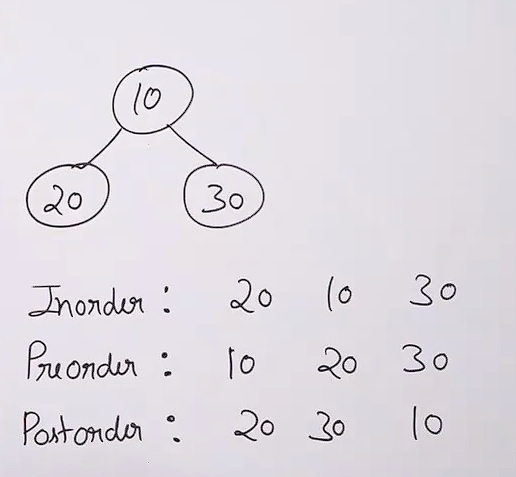 10
20 30
Inorder : 20 10 30
Preorder : 10 20 30
Postorder : 20 30 10